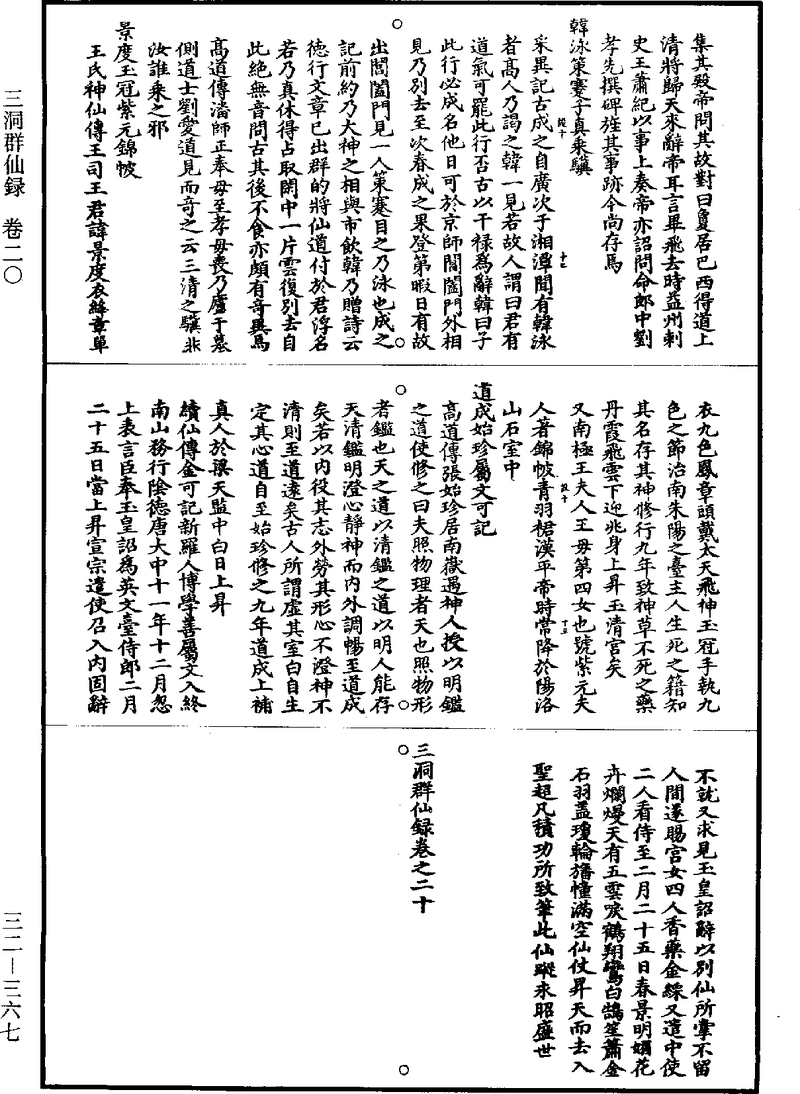 三洞群仙録　卷二〇
三二—三六七
集其殿帝問其故對曰夐居巴西得道上
清將歸天來辭帝耳言畢飛去時益州刺
史王蕭紀以事上奏帝亦詔問命郎中劉
孝先撰碑旌其事跡今尚存焉
韓泳策蹇子真乘驥
采異記古成之自廣次于湘潭間有韓泳
者高人乃謁之韓一見若故人謂曰君有
道氣可罷此行否古以干禄為辭韓曰子
此行必成名他日可於京師閶闔門外相
見乃別去至次春成之果登第暇日有故
出閶闔門見一人策蹇目之乃泳也成之
記前約乃大神之相與市飲韓乃贈詩云
德行文章已出群的將仙道付於君浮名
若乃真休得占取閬中一片雲復別去自
此絶無音問古其後不食亦頗有奇異焉
高道傳潘師正奉母至孝母喪乃廬于墓
側道士劉愛道見而奇之云三清之驥非
汝誰乘之邪
景度玉冠紫元錦帔
王氏神仙傳王司王君諱景度衣絳章單
衣九色鳳章頭戴太天飛神玉冠手執九
色之節治南朱陽之臺主人生死之籍知
其名存其神修行九年致神草不死之藥
丹霞飛雲下迎兆身上昇玉清宮矣
又南極王夫人王母第四女也號紫元夫
人著錦帔青羽裙漢平帝時常降於陽洛
山石室中
道成始珍屬文可記
高道傳張始珍居南嶽遇神人授以明鑑
之道使修之曰夫照物理者天也照物形
者鑑也天之道以清鑑之道以明人能存
天清鑑明澄心靜神而内外調暢至道成
矣若以内役其志外勞其形心不澄神不
清則至道遠矣古人所謂虛其室白自生
定其心道自至始珍修之九年道成上補
真人於梁天監中白日上昇
續仙傳金可記新羅人博學善屬文入終
南山務行陰德唐大中十一年十二月忽
上表言臣奉玉皇詔為英文臺侍郎二月
二十五日當上昇宣宗遣使召入内固辭
不就又求見玉皇詔辭以別仙所掌不留
人間遂賜宮女四人香藥金綵又遣中使
二人看侍至二月二十五日春景明媚花
卉爛熳天有五雲唳鶴翔鸞白鵠笙簫金
石羽盖瓊輪旛幢滿空仙仗昇天而去入
聖超凡積功所致筆此仙蹤永昭盛世
三洞群仙録卷之二十